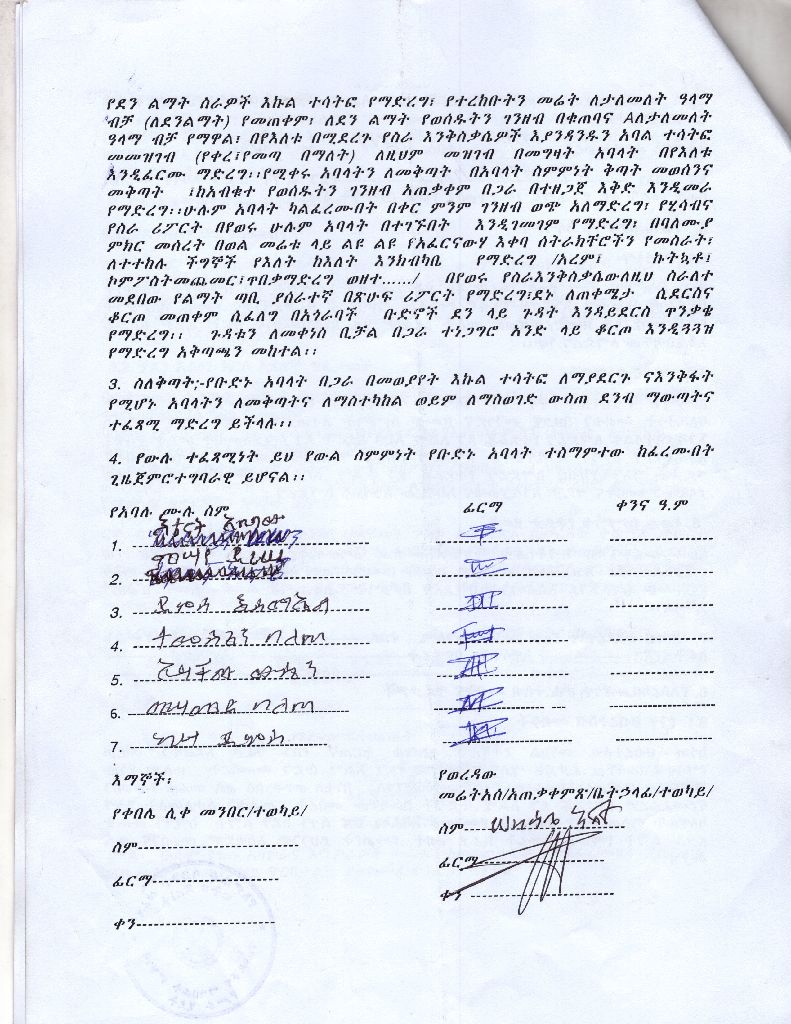 የደን ልማት ስራዎች እኩል ተሳትፎ የማድረግ፣ የተረከቡትን መሬት ለታለመለት ዓላማ
ብቻ (ለደንልማት) የመጠቀም፣ ለደን ልማት የወሰዱትን ገንዘብ በቁጠባና Aለታለመለት
ዓላማ ብቻ የማዋል፣ በየእለቱ በሚደረጉ የስራ እንቅስቃሴዎች እያንዳንዱን አባል ተሳትፎ
መመዝገብ (የቀረ፤የመጣ በማለት) ለዚህም መዝገብ በመግዛት አባላት በየእለቱ
እንዲፈርሙ ማድረግ፡፡የሚቀሩ አባላትን ለመቅጣት በአባላት ስምምነት ቅጣት መወሰንና
መቅጣት ፤ከአብቁተ የወሰዱትን ገንዘብ አጠቃቀም በጋራ በተዘጋጀ እቅድ እንዲመራ
የማድረግ፡፡ሁሉም አባላት ካልፈረሙበት በቀር ምንም ገንዘብ ወጭ አለማድረግ፣ የሂሳብና
የስራ ሪፖርት በየወሩ ሁሉም አባላት በተገኙበት እንዲገመገም የማድረግ፣ በባለሙያ
ምክር መሰረት በወል መሬቱ ላይ ልዩ ልዩ የአፈርናውሃ እቀባ ስትራክቸሮችን የመስራት፣
ለተተከሉ ችግኞች የእለት ከእለት እንክብካቤ የማድረግ /አረም፣ ኩትኳቶ፣
ኮምፖስትመጨመር፣ጥበቃማድረግ ወዘተ....../ በየወሩ የስራእንቅስቃሴውለዚህ ስራለተ
መደበው የልማት ጣቢ ያሰራተኛ በጽሁፍ ሪፖርት የማድረግ፣ደኑ ለጠቀሜታ ሲደርስና
ቆርጦ መጠቀም ሲፈለግ በአጎራባች ቡድኖች ደን ላይ ጉዳት እንዳይደርስ ጥንቃቄ
የማድረግ፡፡ ጉዳቱን ለመቀነስ ቢቻል በጋራ ተነጋግሮ አንድ ላይ ቆርጦ እንዲጓጓዝ
የማድረግ አቅጣጫን መከተል፡፡
3. ስለቅጣት;-የቡድኑ አባላት በጋራ በመወያየት እኩል ተሳትፎ ለማያደርጉ ናእንቅፋት
የሚሆኑ አባላትን ለመቅጣትና ለማስተካከል ወይም ለማስወገድ ውስጠ ደንብ ማውጣትና
ተፈጻሚ ማድረግ ይችላሉ፡፡
4. የውሉ ተፈጻሚነት ይህ የውል ስምምነት የቡድኑ አባላት ተስማምተው ከፈረሙበት
ጊዜጀምሮተግባራዊ ይሆናል፡፡
የአባሉ ሙሉ ስም ፊርማ ቀንና ዓ.ም
1.
2.
3.
4.
5.
6.
7.
እማኞች፡
የቀበሌ ሊቀ መንበር/ተወካይ/
ስም
ፊርማ
ቀን
የወረዳው
መሬትአስ/አጠቃቀምጽ/ቤትኃላፊ/ተወካይ/
ስም
ፊርማ
ቀን